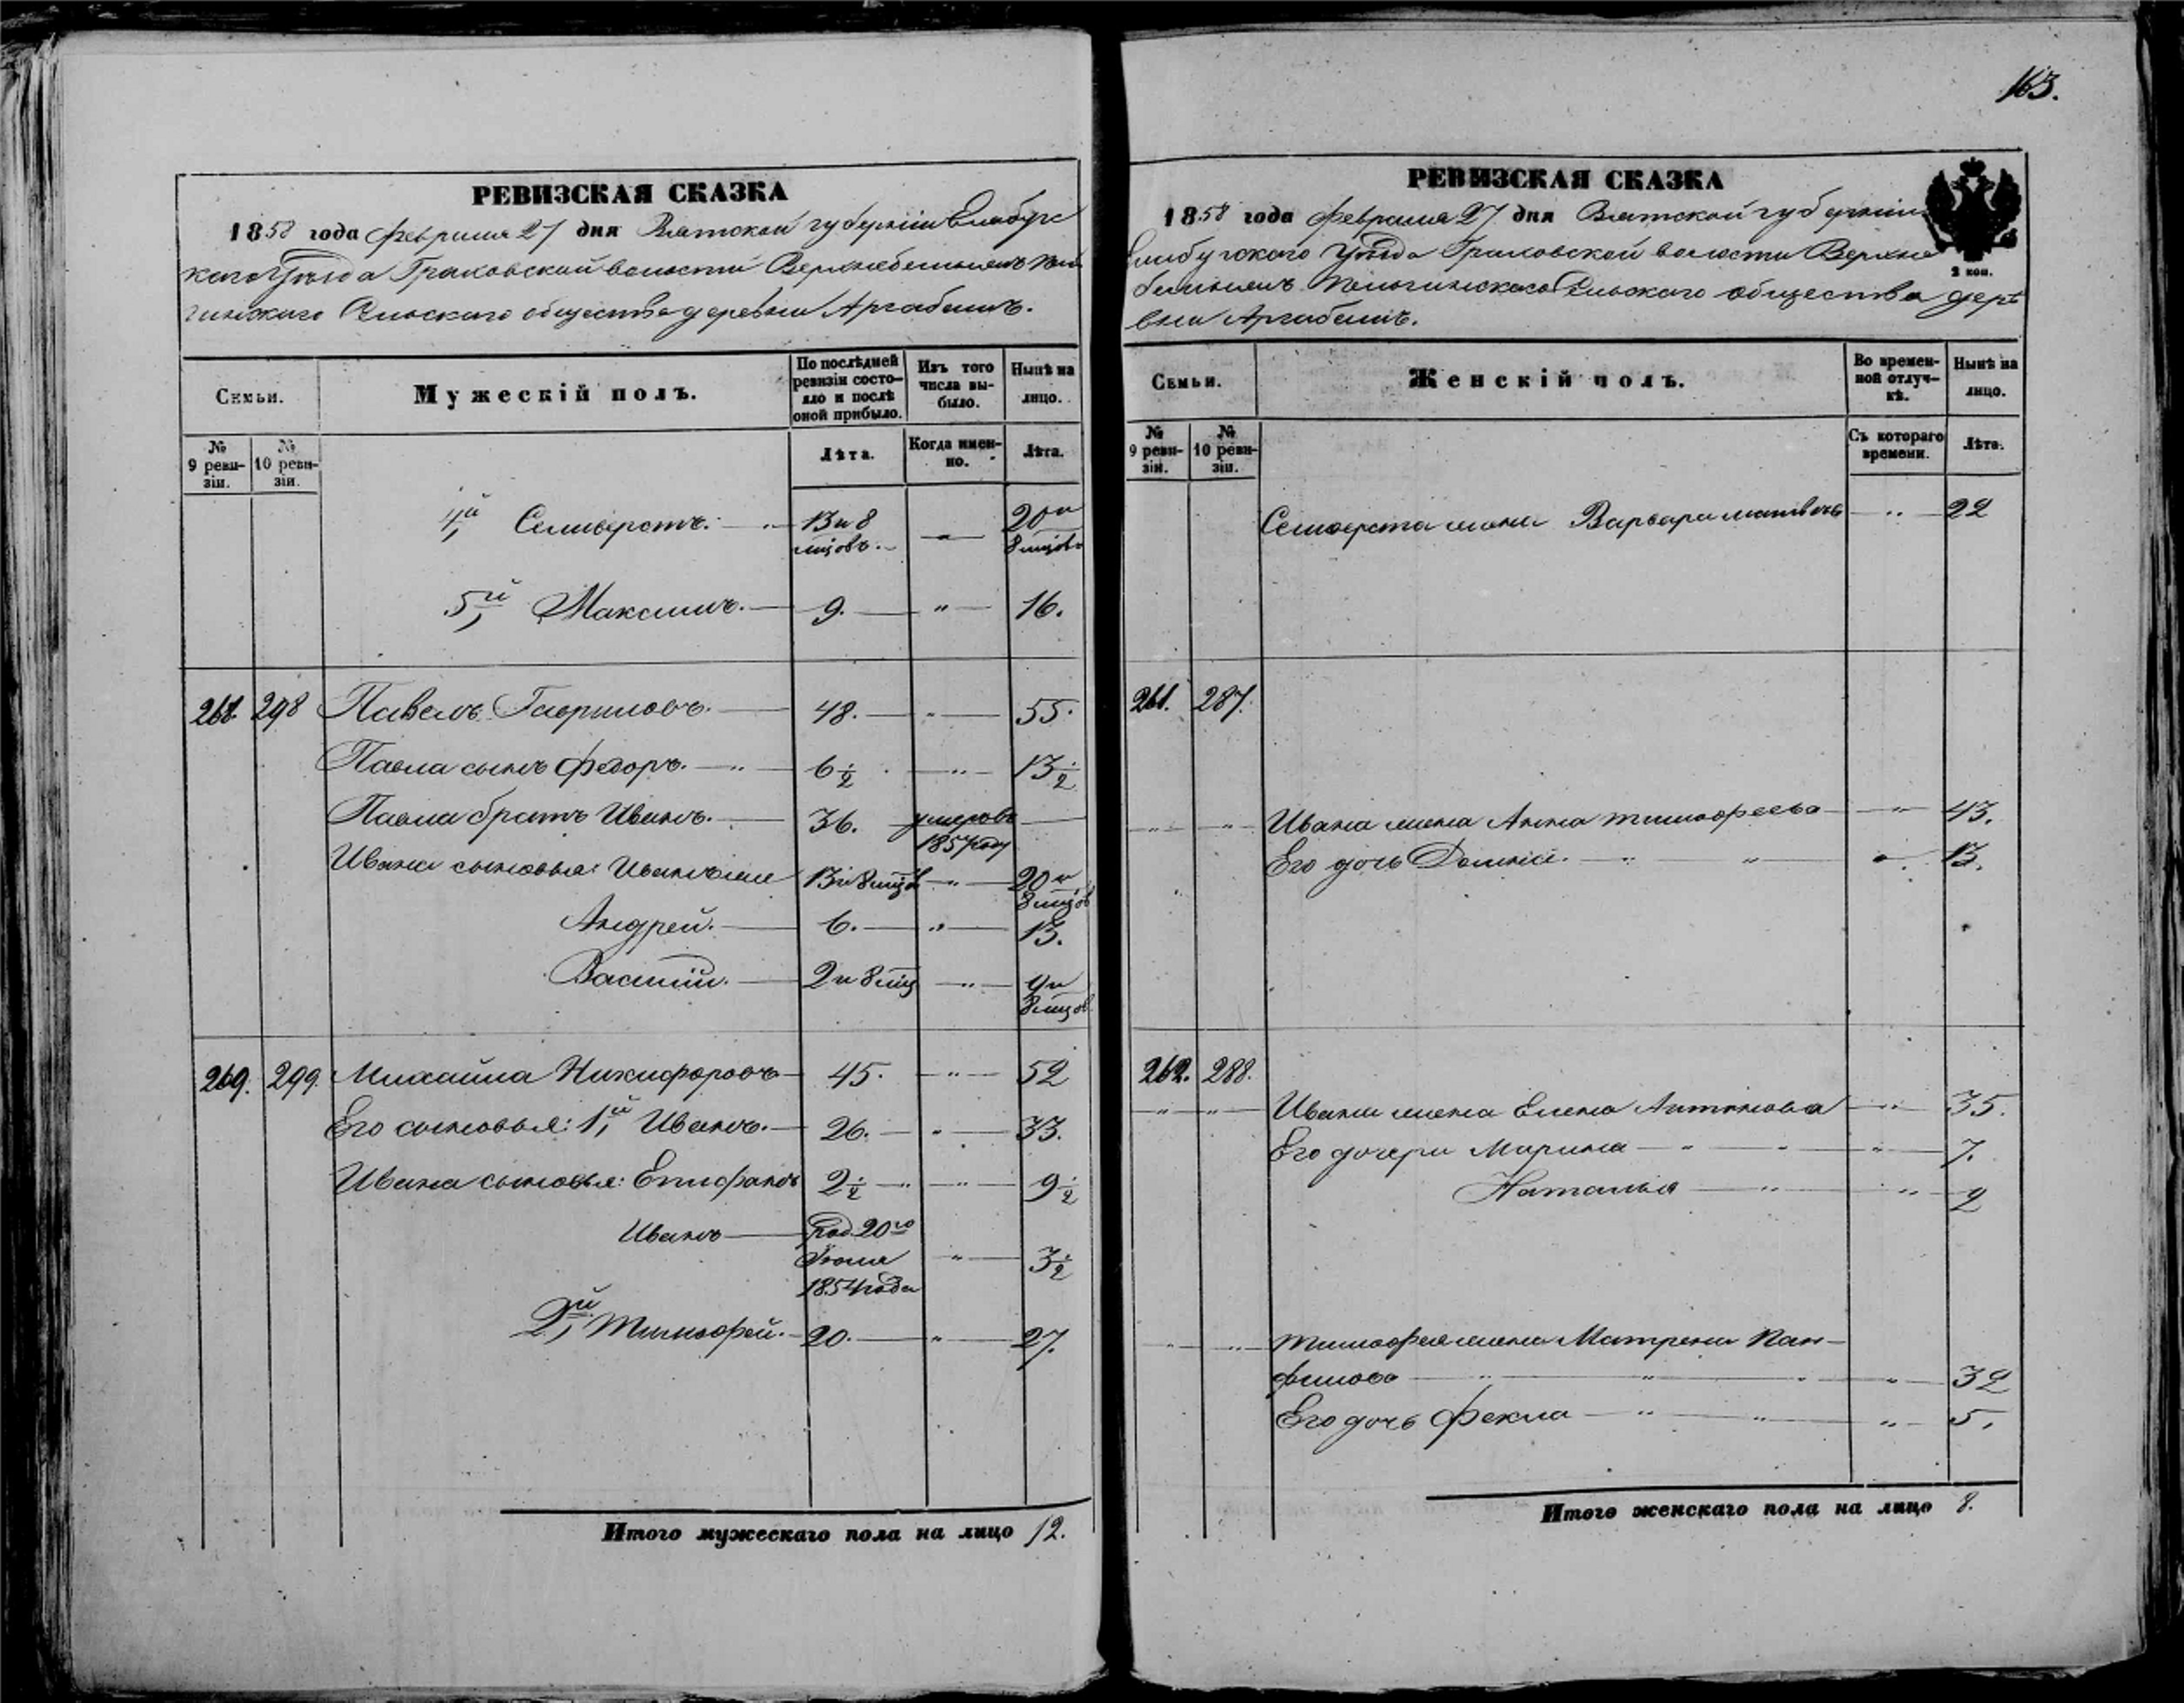 163.
РЕВИЗСКАЯ СКАЗКА
1858 года февраля 27 дня Вятской губернии Елабуж
каго Уѣзда Граховской волости
гинскаго Сельскаго общества деревни Аргабашъ.
Семьи.
Мужескій полъ.
По послѣдней ревизіи состояло и послѣ оной прибыло.
Изъ того числа выбыло.
Нынѣ на лицо.
№ 9 ревизіи.
№ 10 ревизіи.
Лѣта.
Когда именно.
Лѣта.
4й Селиверстъ. 13 и 8 мцовъ. 20 и 8 мцовъ
5й Максимъ. 9. 16.
268. 298 Павелъ Гавриловъ. 48. 55.
Павла сынъ Федоръ. 6½ 13½
Павла братъ Иванъ. 36. умеръ въ 1857 году
Ивана сыновья: Иванъ 13 и 8 мцов 20 и 8 мцов
Андрей. 6. 13.
Василій. 2 и 8 мц 9 и 8 мцов
269. 299. Михайла Никифоровъ 45. 52
Его сыновья: 1й Иванъ. 26. 33.
Ивана сыновья: Епифанъ 2½ 9½
Иванъ Род. 20го Іюля 1854 года 3½
2й Тимофей. 20. 27.
Итого мужескаго пола на лицо 12.
РЕВИЗСКАЯ СКАЗКА
2 коп.
1858 года февраля 27 дня Вятской губерніи
Елабужскаго Уѣзда Граховской волости Верхне
Сельскаго общества дере
вни Аргабашъ.
Семьи.
Женскій полъ.
Во временной отлучкѣ.
Нынѣ на лицо.
№ 9 ревизіи.
№ 10 ревизіи.
Съ котораго времени.
Лѣта.
Селиверста жена Варвара Матвѣева 22
261. 287.
Ивана жена Анна Тимофеева 43.
Его дочь 13.
262. 288.
Ивана жена Елена Антонова 35.
Его дочери Марина 7.
Наталья 2
Тимофея жена Матрена Пан-
филова 32
Его дочь Фекла 5.
Итого женскаго пола на лицо 8.